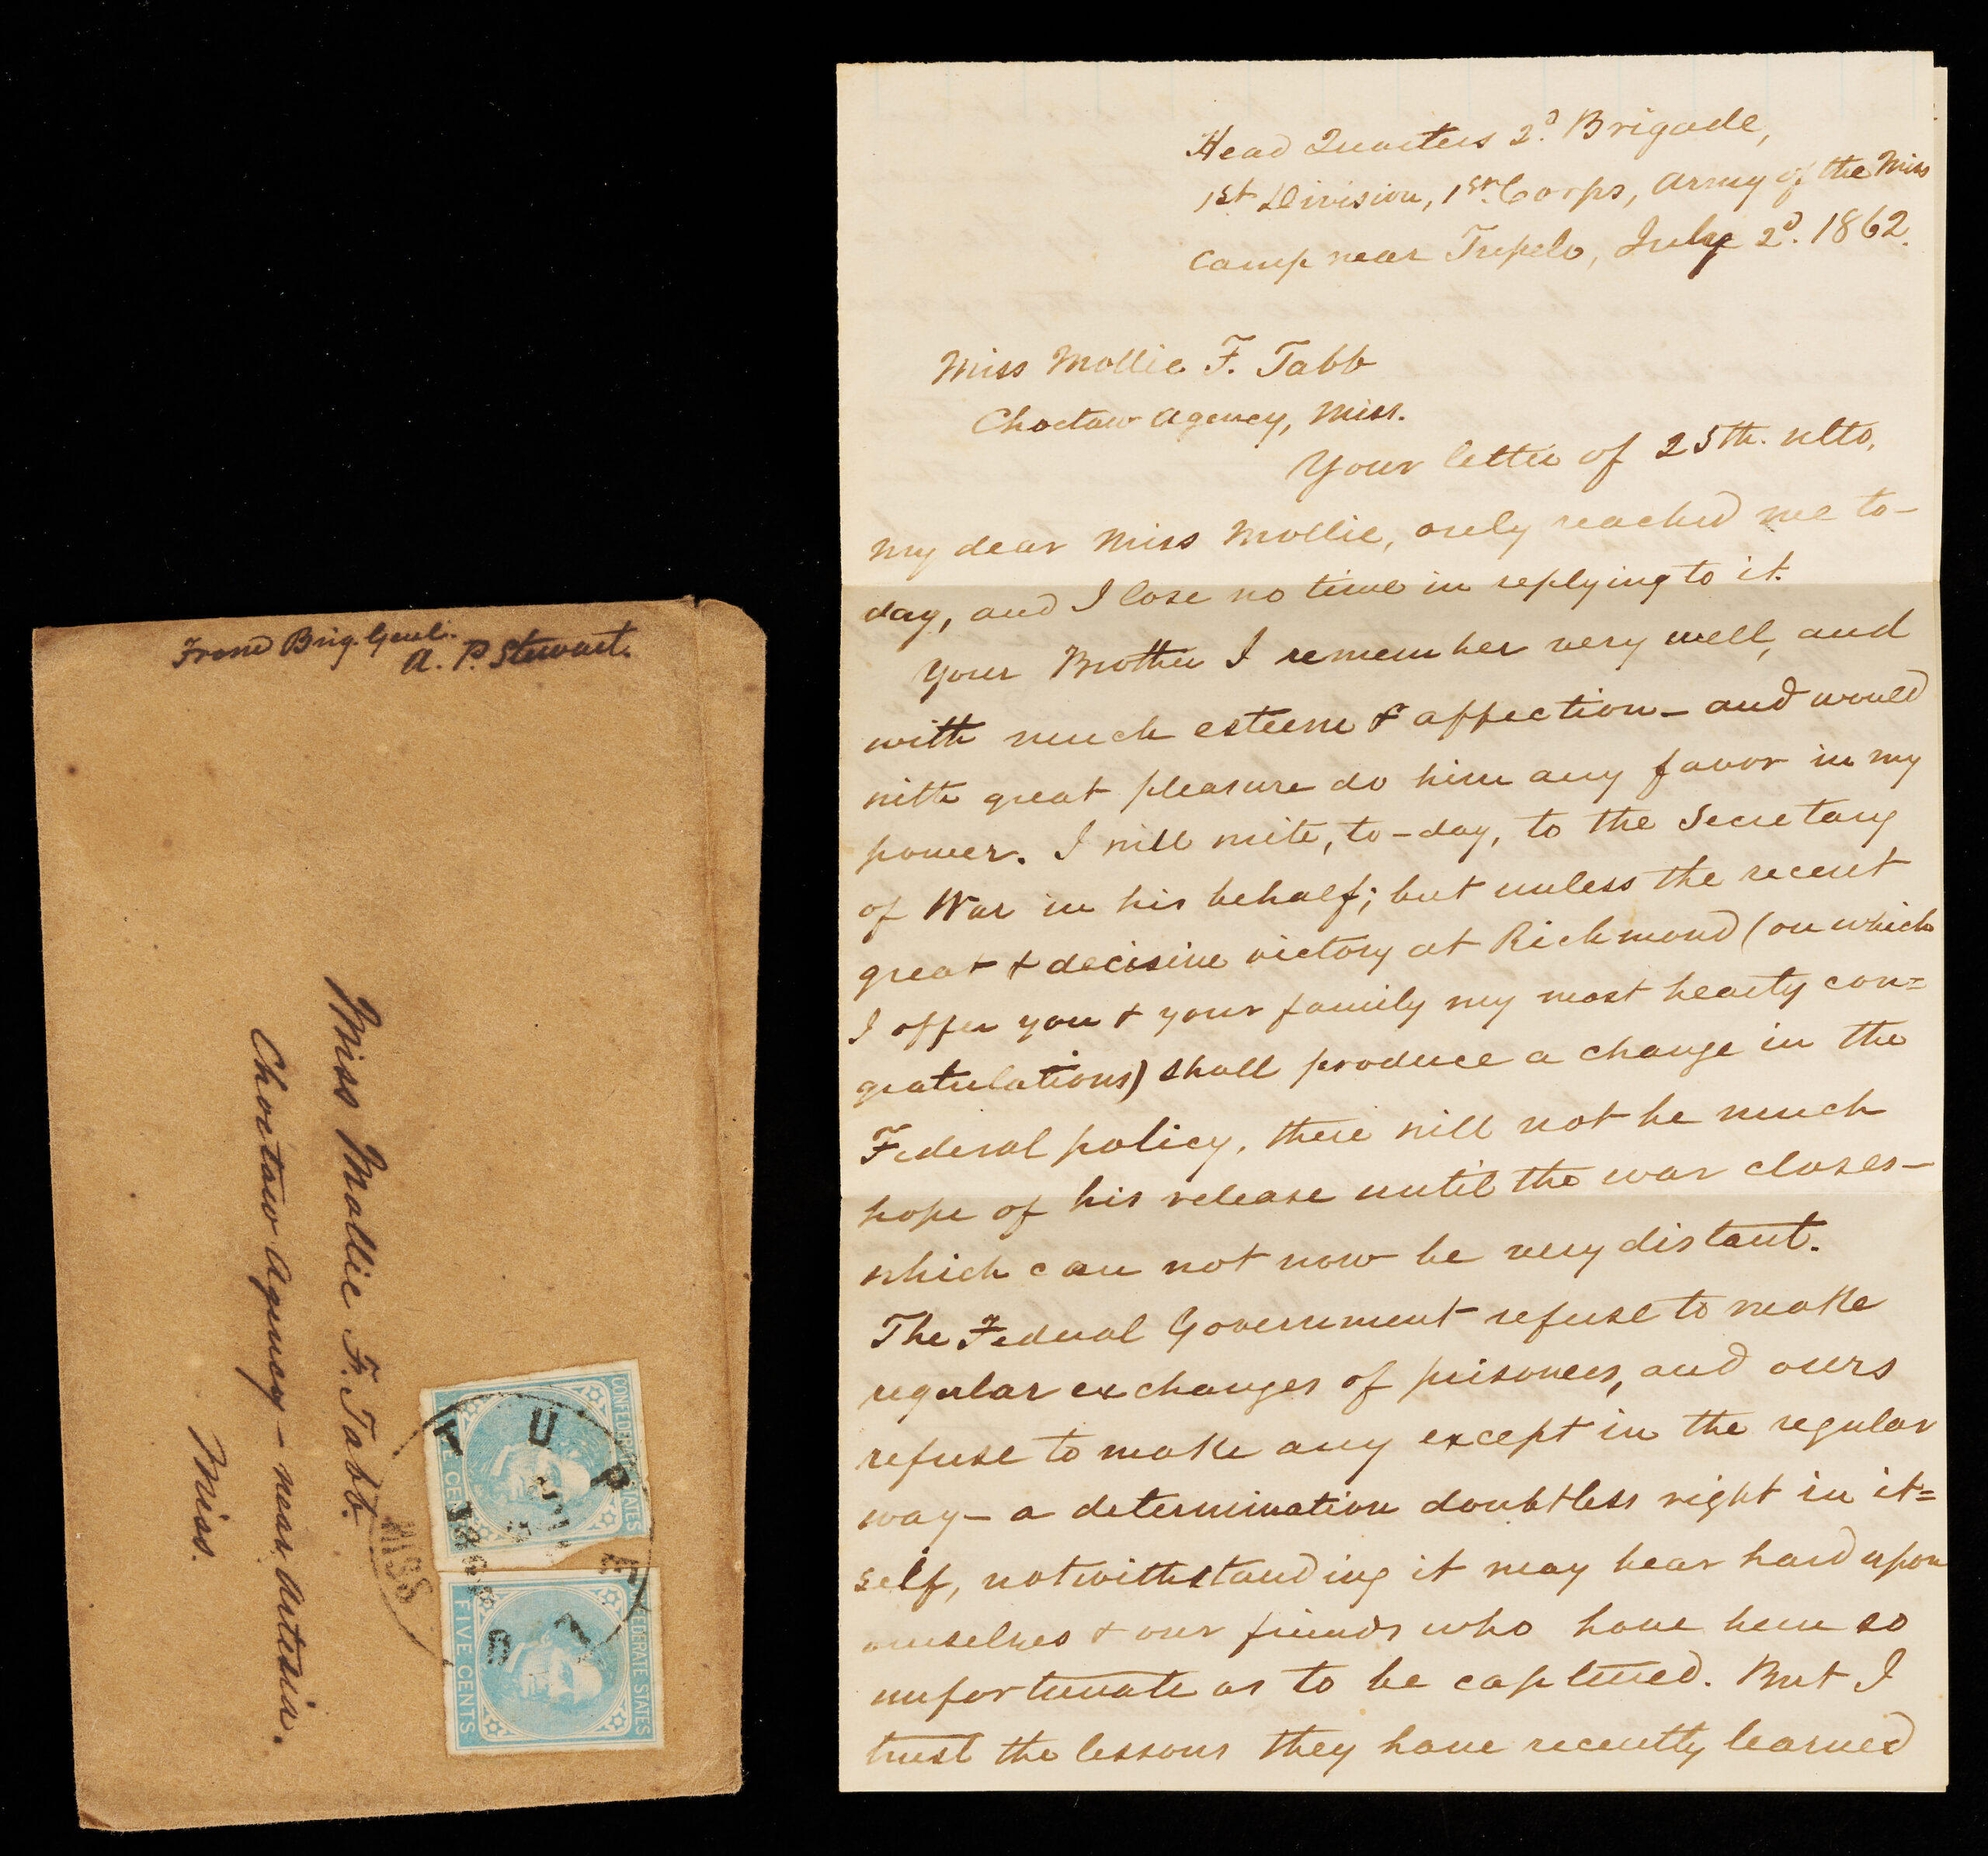 From Brig. Genl.
A. P. Stewart.
Miss Mollie F. Tabb.
Choctaw Agency – near Artesia.
Miss.
CONFEDERATE STATES
FIVE CENTS
CONFEDERATE STATES
FIVE CENTS
TUPELO
MISS
Head Quarters 2d. Brigade,
1st Division, 1st. Corps, Army of the Miss
Camp near Tupelo, July 2d. 1862.
Miss Mollie F. Tabb
Choctaw Agency, Miss.
Your letter of 25th. ulto,
my dear Miss Mollie, only reached me to-
day, and I lose no time in replying to it.
Your Brother I remember very well, and
with much esteem & affection – and would
with great pleasure do him any favor in my
power. I will write, to-day, to the Secretary
of War in his behalf; but unless the recent
great & decisive victory at Richmond (on which
I offer you & your family my most hearty con=
gratulations) shall produce a change in the
Federal policy, there will not be much
hope of his release until the war closes –
which can not now be very distant.
The Federal Government refuse to make
regular exchanges of prisoners, and ours
refuse to make any except in the regular
way – a determination doubtless right in it=
self, notwithstanding it may bear hard upon
ourselves & our friends who have been so
unfortunate as to be captured. But I
trust the lessons they have recently learned